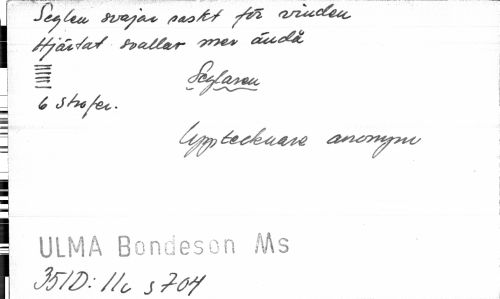 Seglen svajar sakt för vinden
Hjärtat svallar mer ändå
Seglaren
6 strofer.
Upptecknare anonym
ULMA Bondeson Ms
351D: 11c s 704